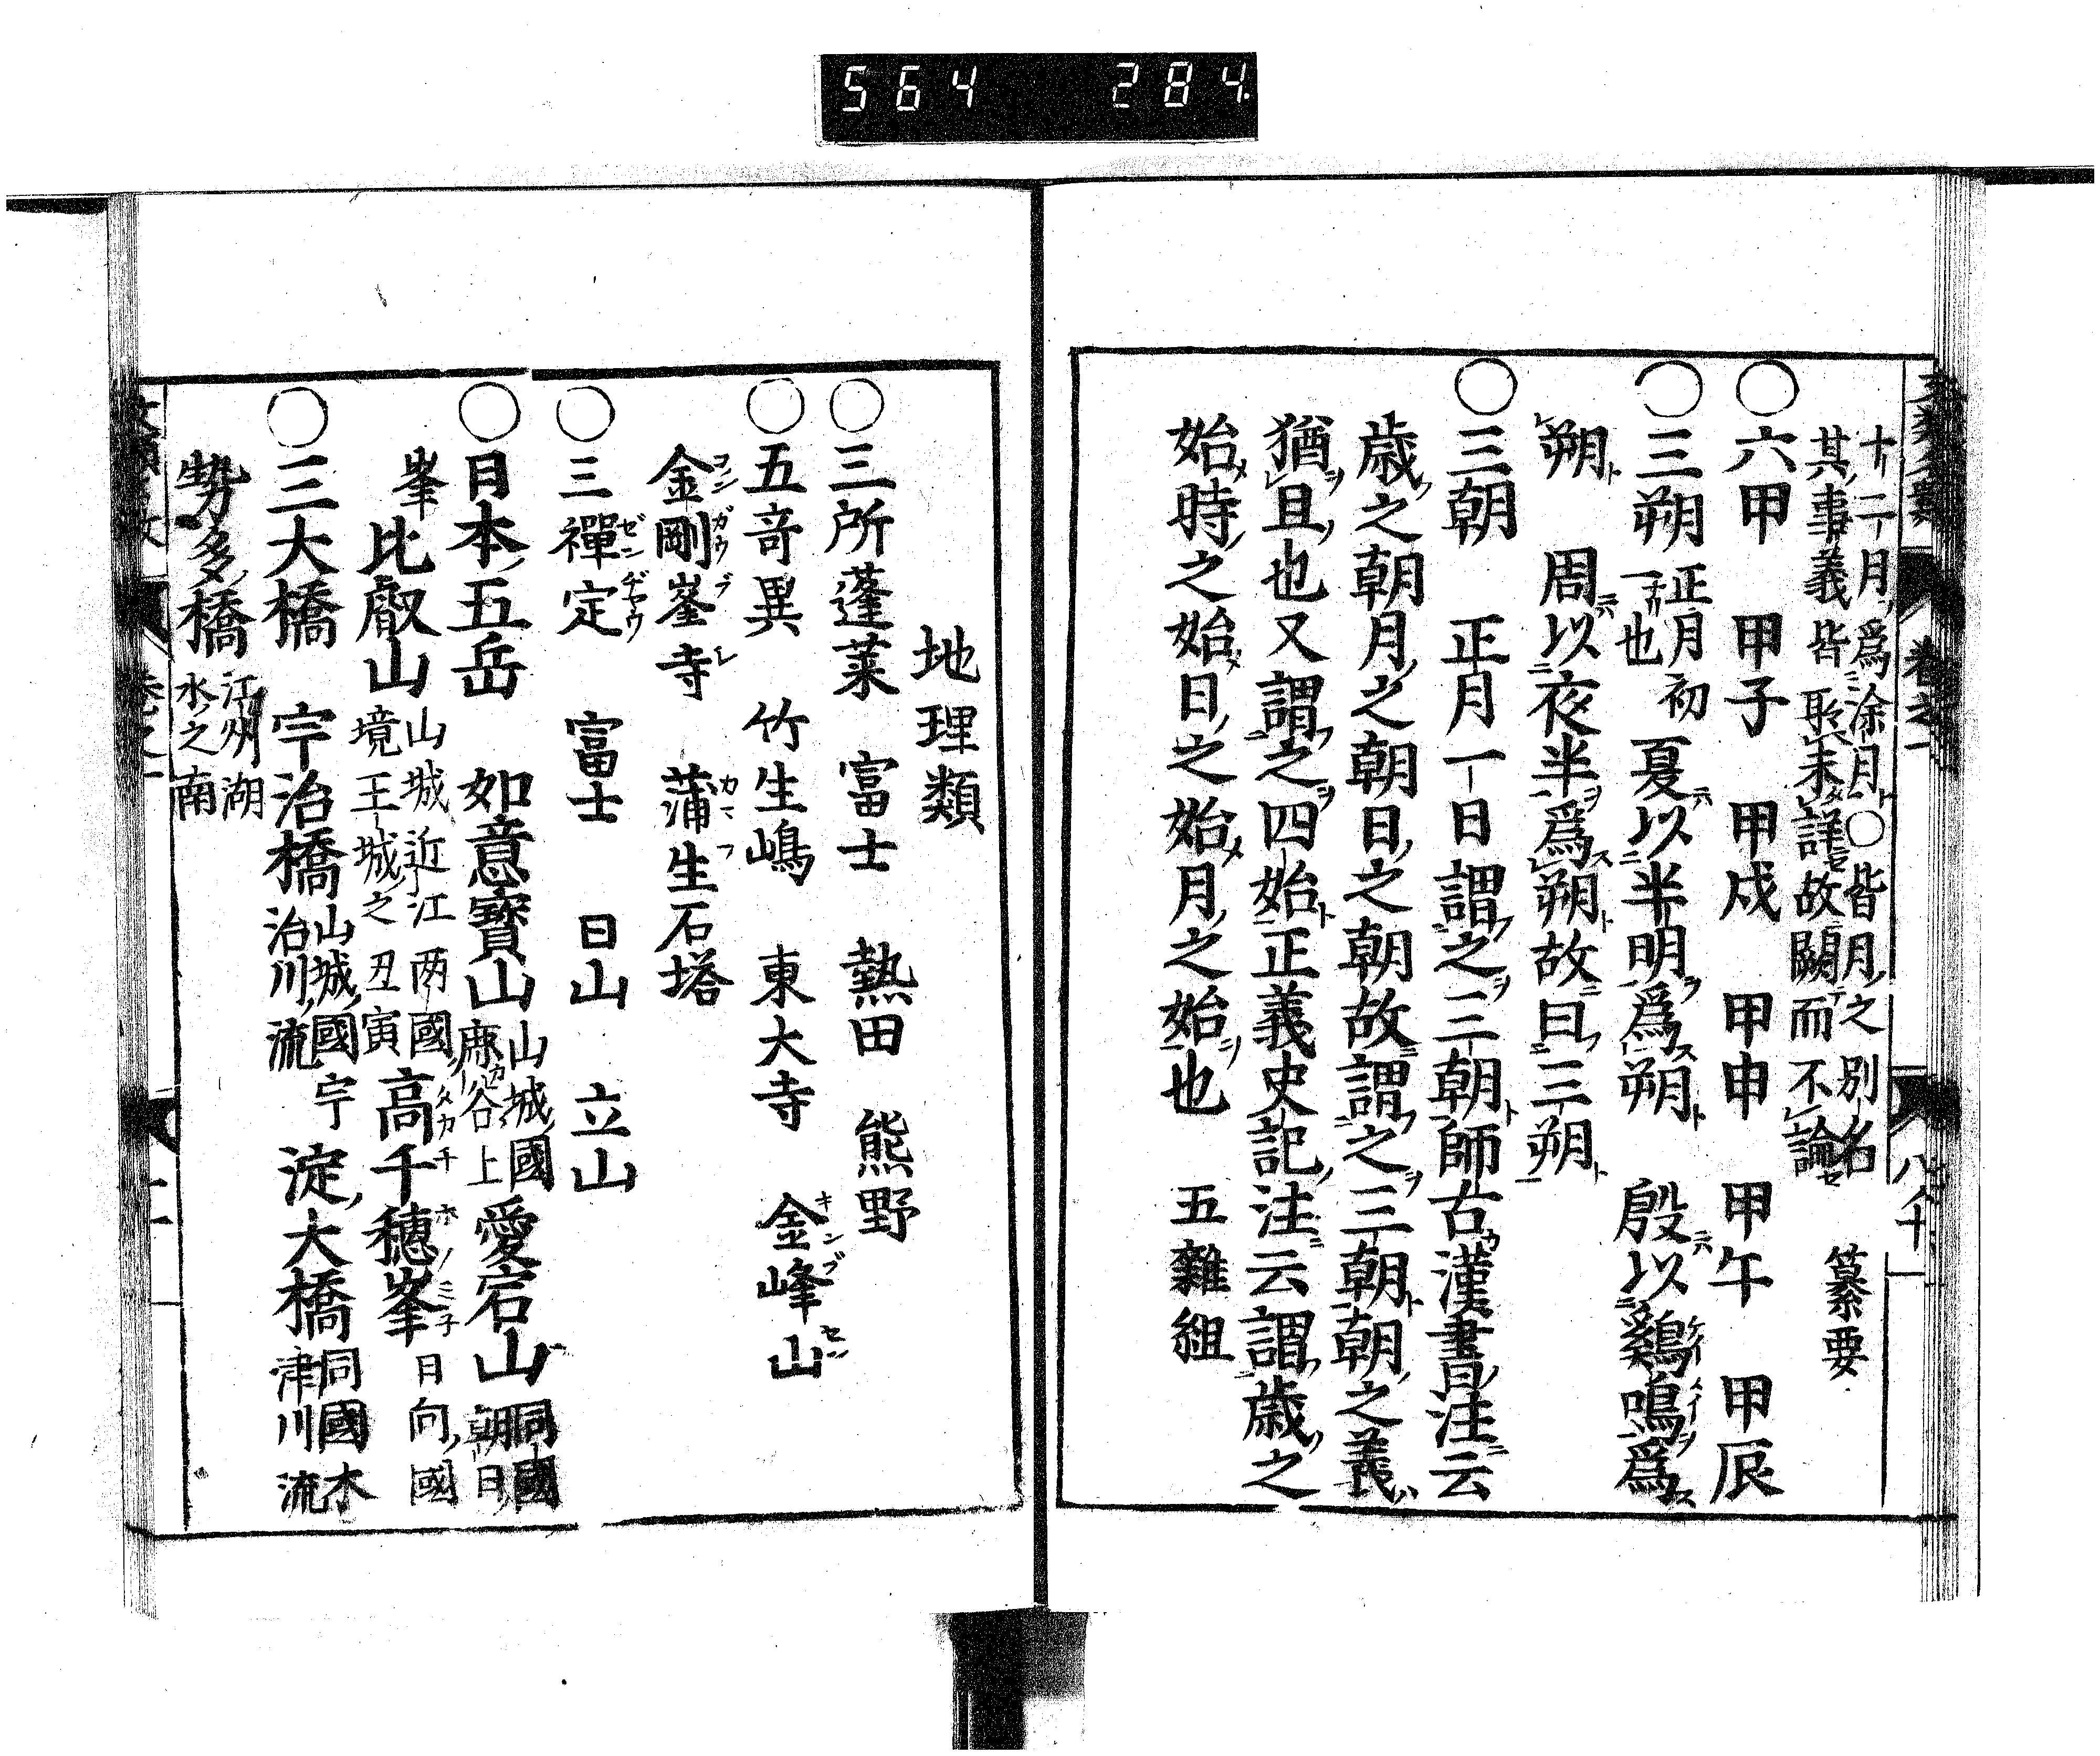 564 284
十二月爲涂月○皆月之別名
其事義皆聚未詳故闕而不論 纂要
○六甲 甲子 甲戌 甲申 甲午 甲辰
○三朔 正月初一也 夏以半明爲朔 殷以鷄鳴爲
朔 周以夜半爲朔故曰三朔
○三朝 正月一日謂之三朝師古漢書注云
歳之朝月之朝日之朝故謂之三朝朝之義
猶且也又謂之四始正義史記注云謂歳之
始時之始日之始月之始也 五雜組
地理類
○三所蓬莱 富士 熱田 熊野
○五竒異 竹生嶋 東大寺 金峰山
金剛峯寺 蒲生石塔
○三禪定 富士 日山 立山
○日本五岳 如意寶山 山城國鹿谷上 愛宕山 同國朝日
峯 比叡山 山城近江两國境王城之丑寅 高千穗峯 日向國
○三大橋 宇治橋 山城國宇治川流 淀大橋 同國木津川流
勢多橋 江州湖水之南